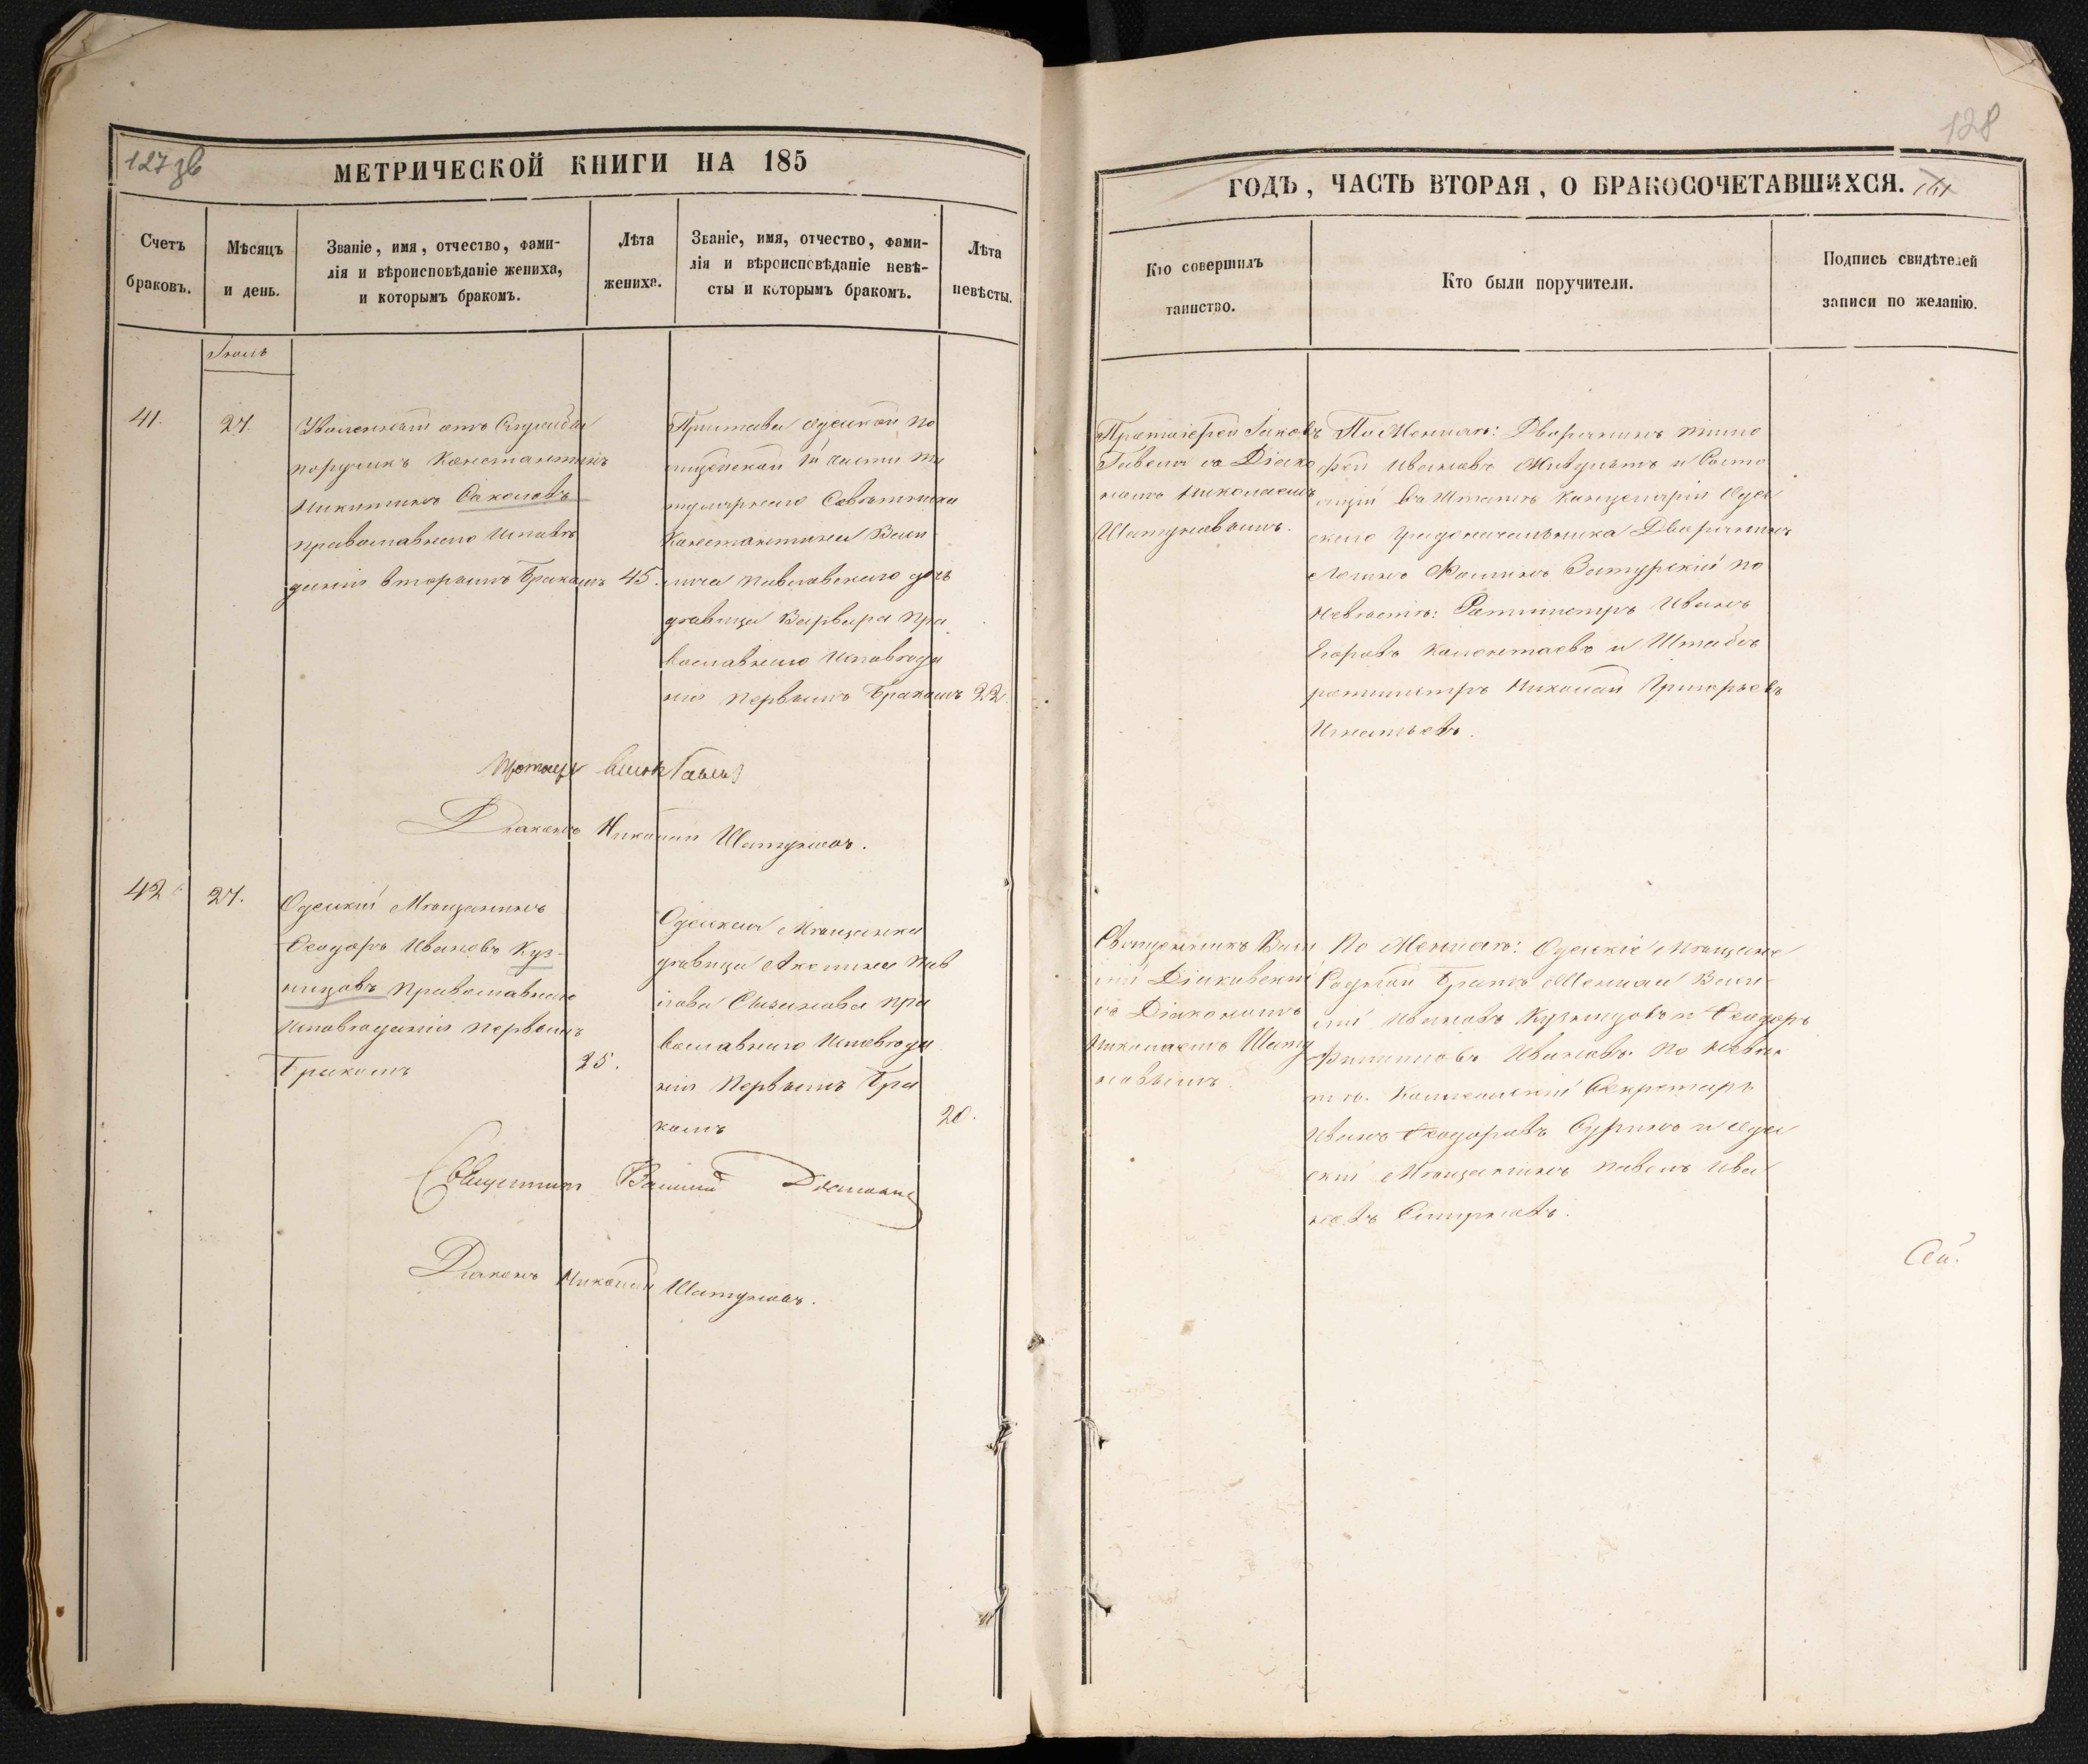 127 зв
МЕТРИЧЕСКОЙ КНИГИ НА 185
Счетъ
браковъ.
Мѣсяцъ
и день.
Званіе, имя, отчество, фами-
лія и вѣроисповѣданіе жениха,
и которымъ бракомъ.
Лѣта
жениха.
Званіе, имя, отчество, фами-
лія и вѣроисповѣданіе невѣ-
сты и которымъ бракомъ.
Лѣта
невѣсты.
Іюль
41.
27.
Уволенный отъ Службы
поручикъ Константинъ
Никитинъ Соколовъ
православнаго Исповѣ
данія вторымъ Бракомъ
45.
Пристава Одесской по
лицейской 1й части ти
тулярнаго Совѣтника
Константина Васи
лича Павловскаго дочь
дѣвица Варвара пра
вославнаго Исповѣда
нія первымъ Бракомъ
22.
Діаконъ Николай Шатуновъ.
42
27.
Одесскій Мѣщанинъ
Ѳеодоръ Ивановъ Куз-
нецовъ Православнаго
Исповѣданія первымъ
Бракомъ
25.
Одесская Мѣщанка
дѣвица Акелина Пав
лова пра
вославнаго Исповѣда
нія Первымъ Бра
комъ
20.
Священникъ Василій
Діаконъ Николай Шатуновъ.
128
ГОДЪ, ЧАСТЬ ВТОРАЯ, О БРАКОСОЧЕТАВШИХСЯ.
161
Кто совершилъ
таинство.
Кто были поручители.
Подпись свидѣтелей
записи по желанію.
Протоіерей Іаковъ
съ Діако
номъ Николаемъ
Шатуновымъ.
По Женихѣ: Дворянинъ Тимо
фей Ивановъ и Состо
ящій въ Штатѣ Канцеляріи Одес
скаго Градоначальника Дворянинъ
Затурскій по
Невѣстѣ: Ротмистръ Иванъ
Егоровъ и Штабсъ
ротмистръ Николай Григорьевъ
Игнатьевъ.
Священникъ Васи
лій Діаковскій
съ Діакономъ
Николаемъ Шату
новымъ
По Женихѣ: Одесскіе Мѣщане
Родной Братъ Жениха Васи-
лій Ивановъ Кузнецовъ и Ѳеодоръ
Филиповъ Ивановъ. по невѣс
тѣ. Коллежскій Секретарь
Иванъ Ѳеодоровъ Суринъ и Одес
скій Мѣщанинъ Павелъ Ива
новъ Смирновъ.